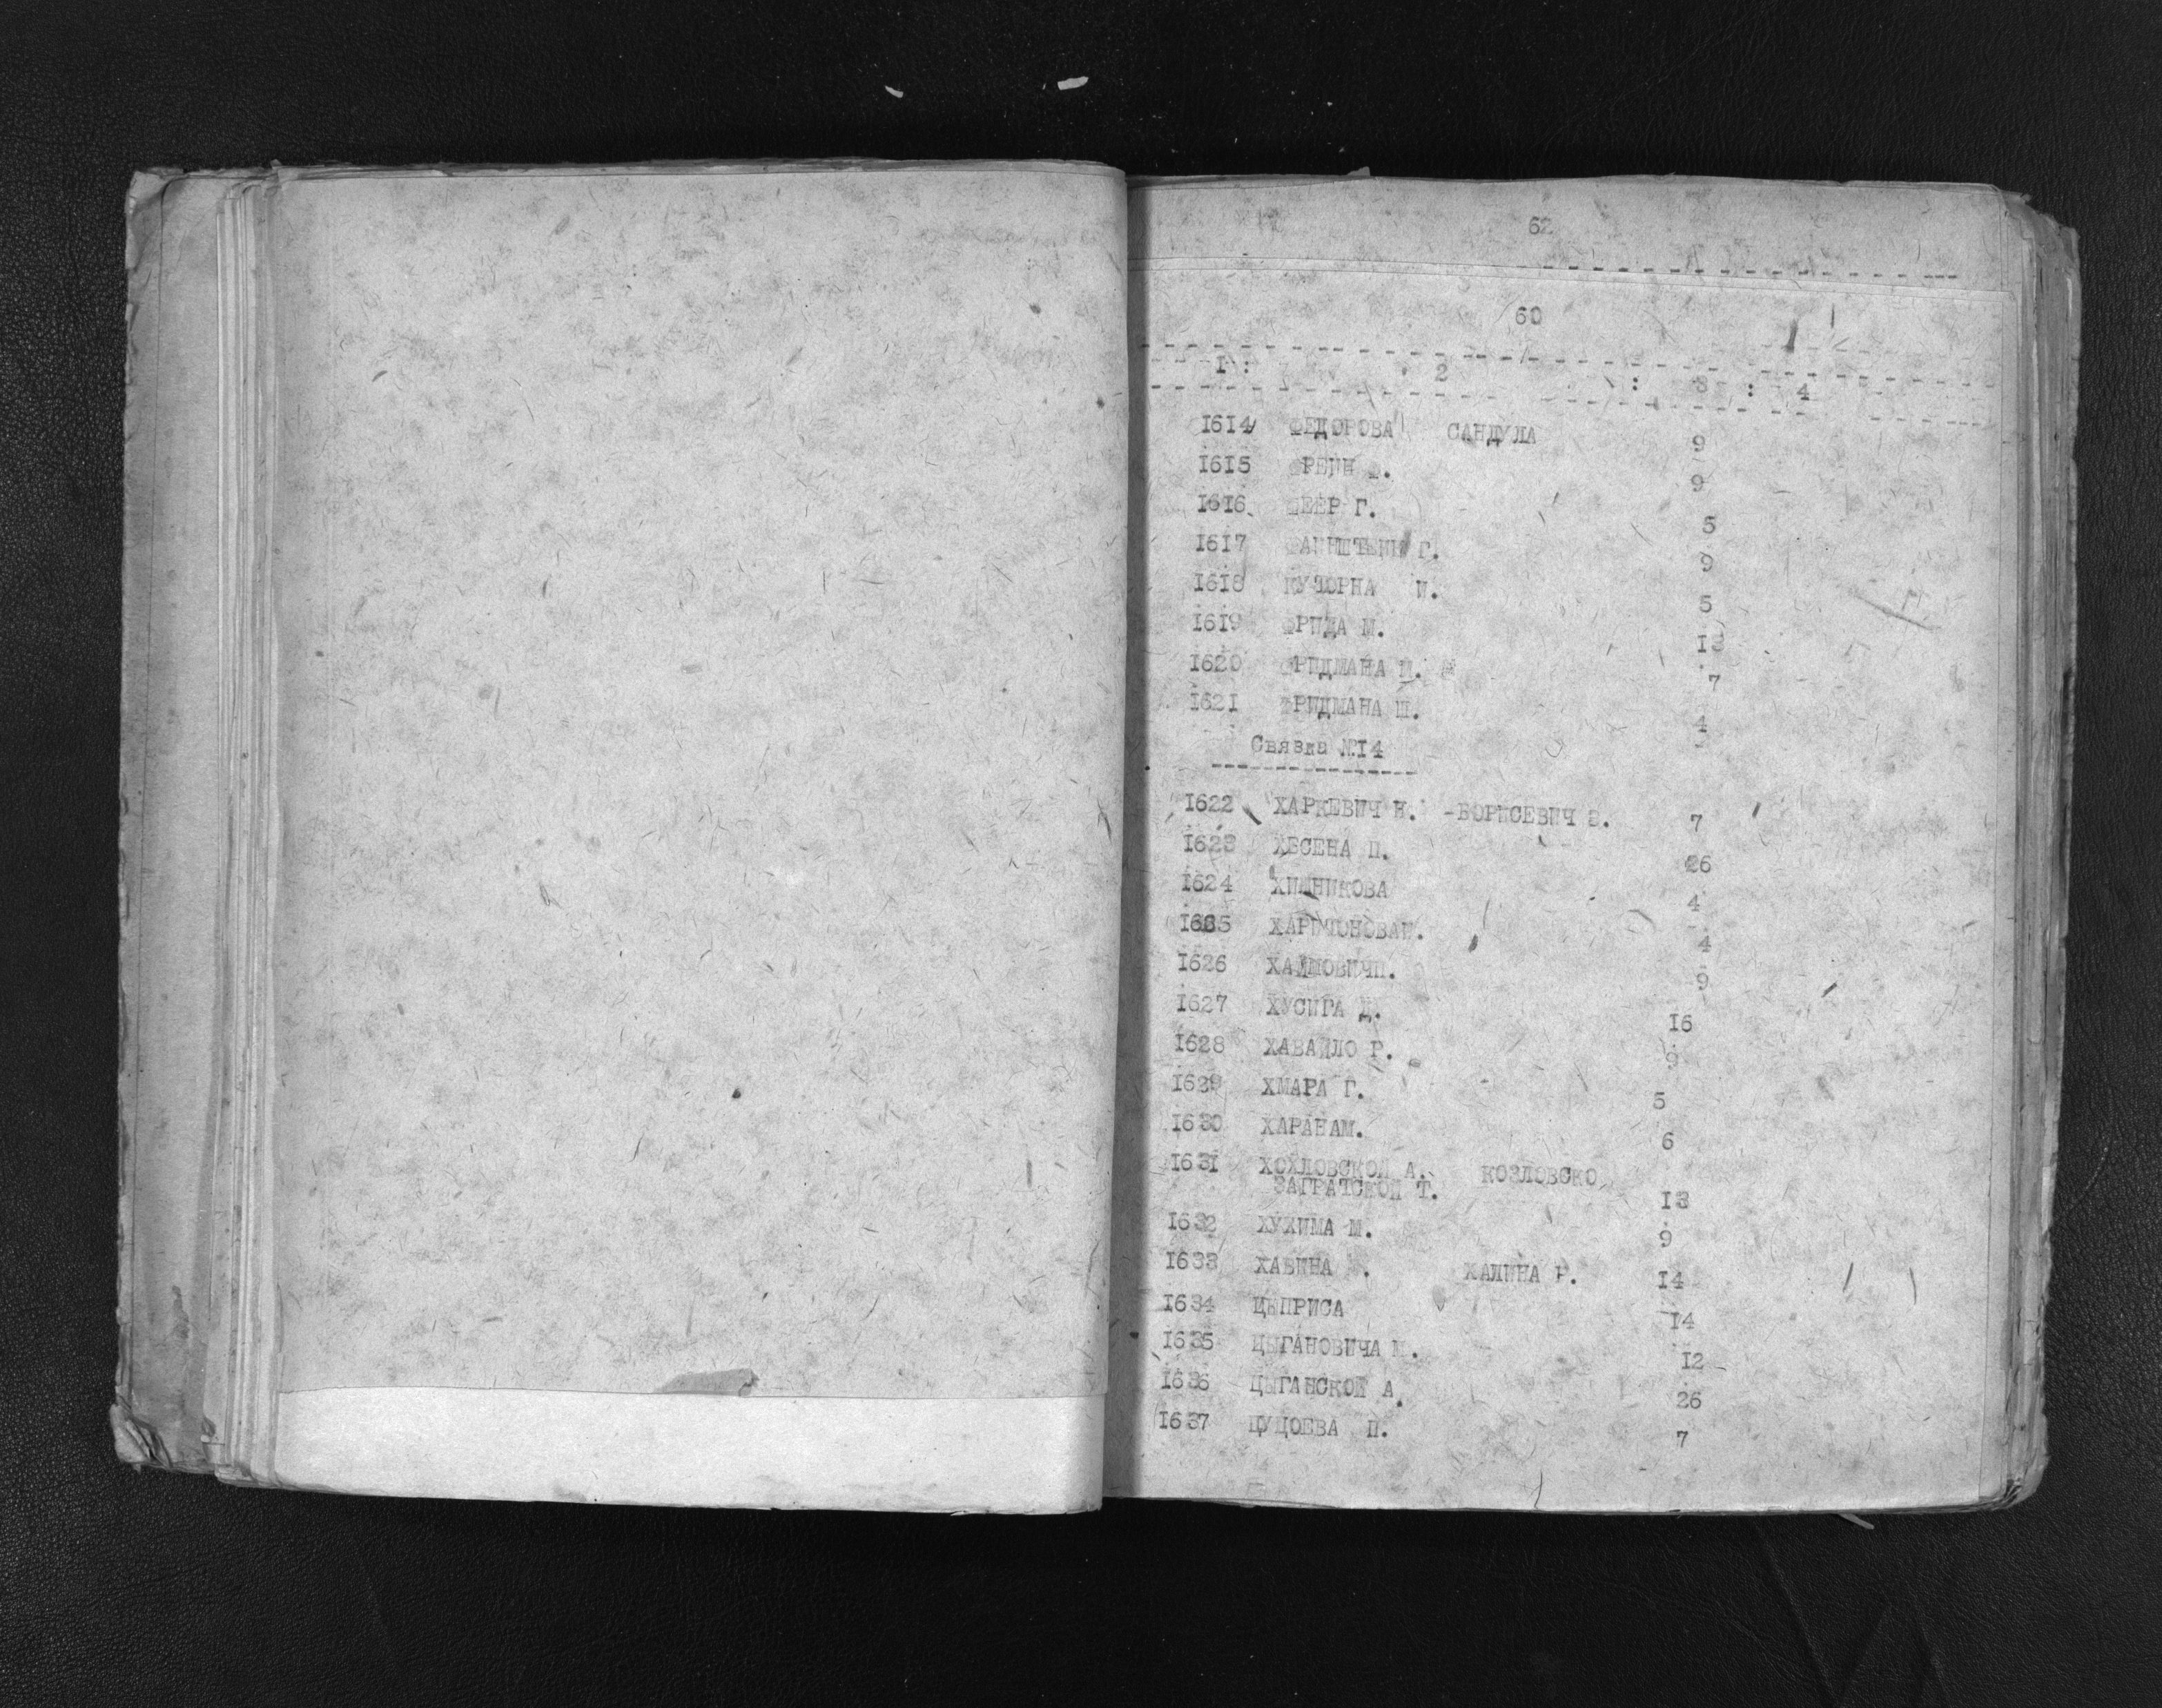 62
60
1 : 2 : 3 : 4
1614 ФЕДОРОВА САНДУЛА 9
1615 ФРЕЙН Ф. 9
1616 ШЕЕР Г. 5
1617 ФАЙНШТЕЙН Г. 9
1618 И. 5
1619 ФРИДА М. 13
1620 ФРИДМАНА И. 7
1621 ФРИДМАНА Ш. 4
Связка №14
1622 ХАРКЕВИЧ Н. -БОРИСЕВИЧ В. 7
1623 ХЕСЕНА П. 26
1624 ХИЖНИКОВА 4
1625 ХАРИТОНОВАИ. 4
1626 ХАИМОВИЧП. 9
1627 ХУСИГА Д. 16
1628 ХАВАЙЛО Г. 9
1629 ХМАРА Г. 5
1630 ХАРАНАМ. 6
1631 ХОХЛОВСКОЙ А. КОЗЛОВСКО
ЗАГРАТСКОЙ Т. 13
1632 ХУХИМА М. 9
1633 ХАВИНА ХАЛИНА Р. 14
1634 ЦЫПРИСА 14
1635 ЦЫГАНОВИЧА 12
1636 ЦЫГАНСКОЙ А. 26
1637 ЦУЦОЕВА П. 7